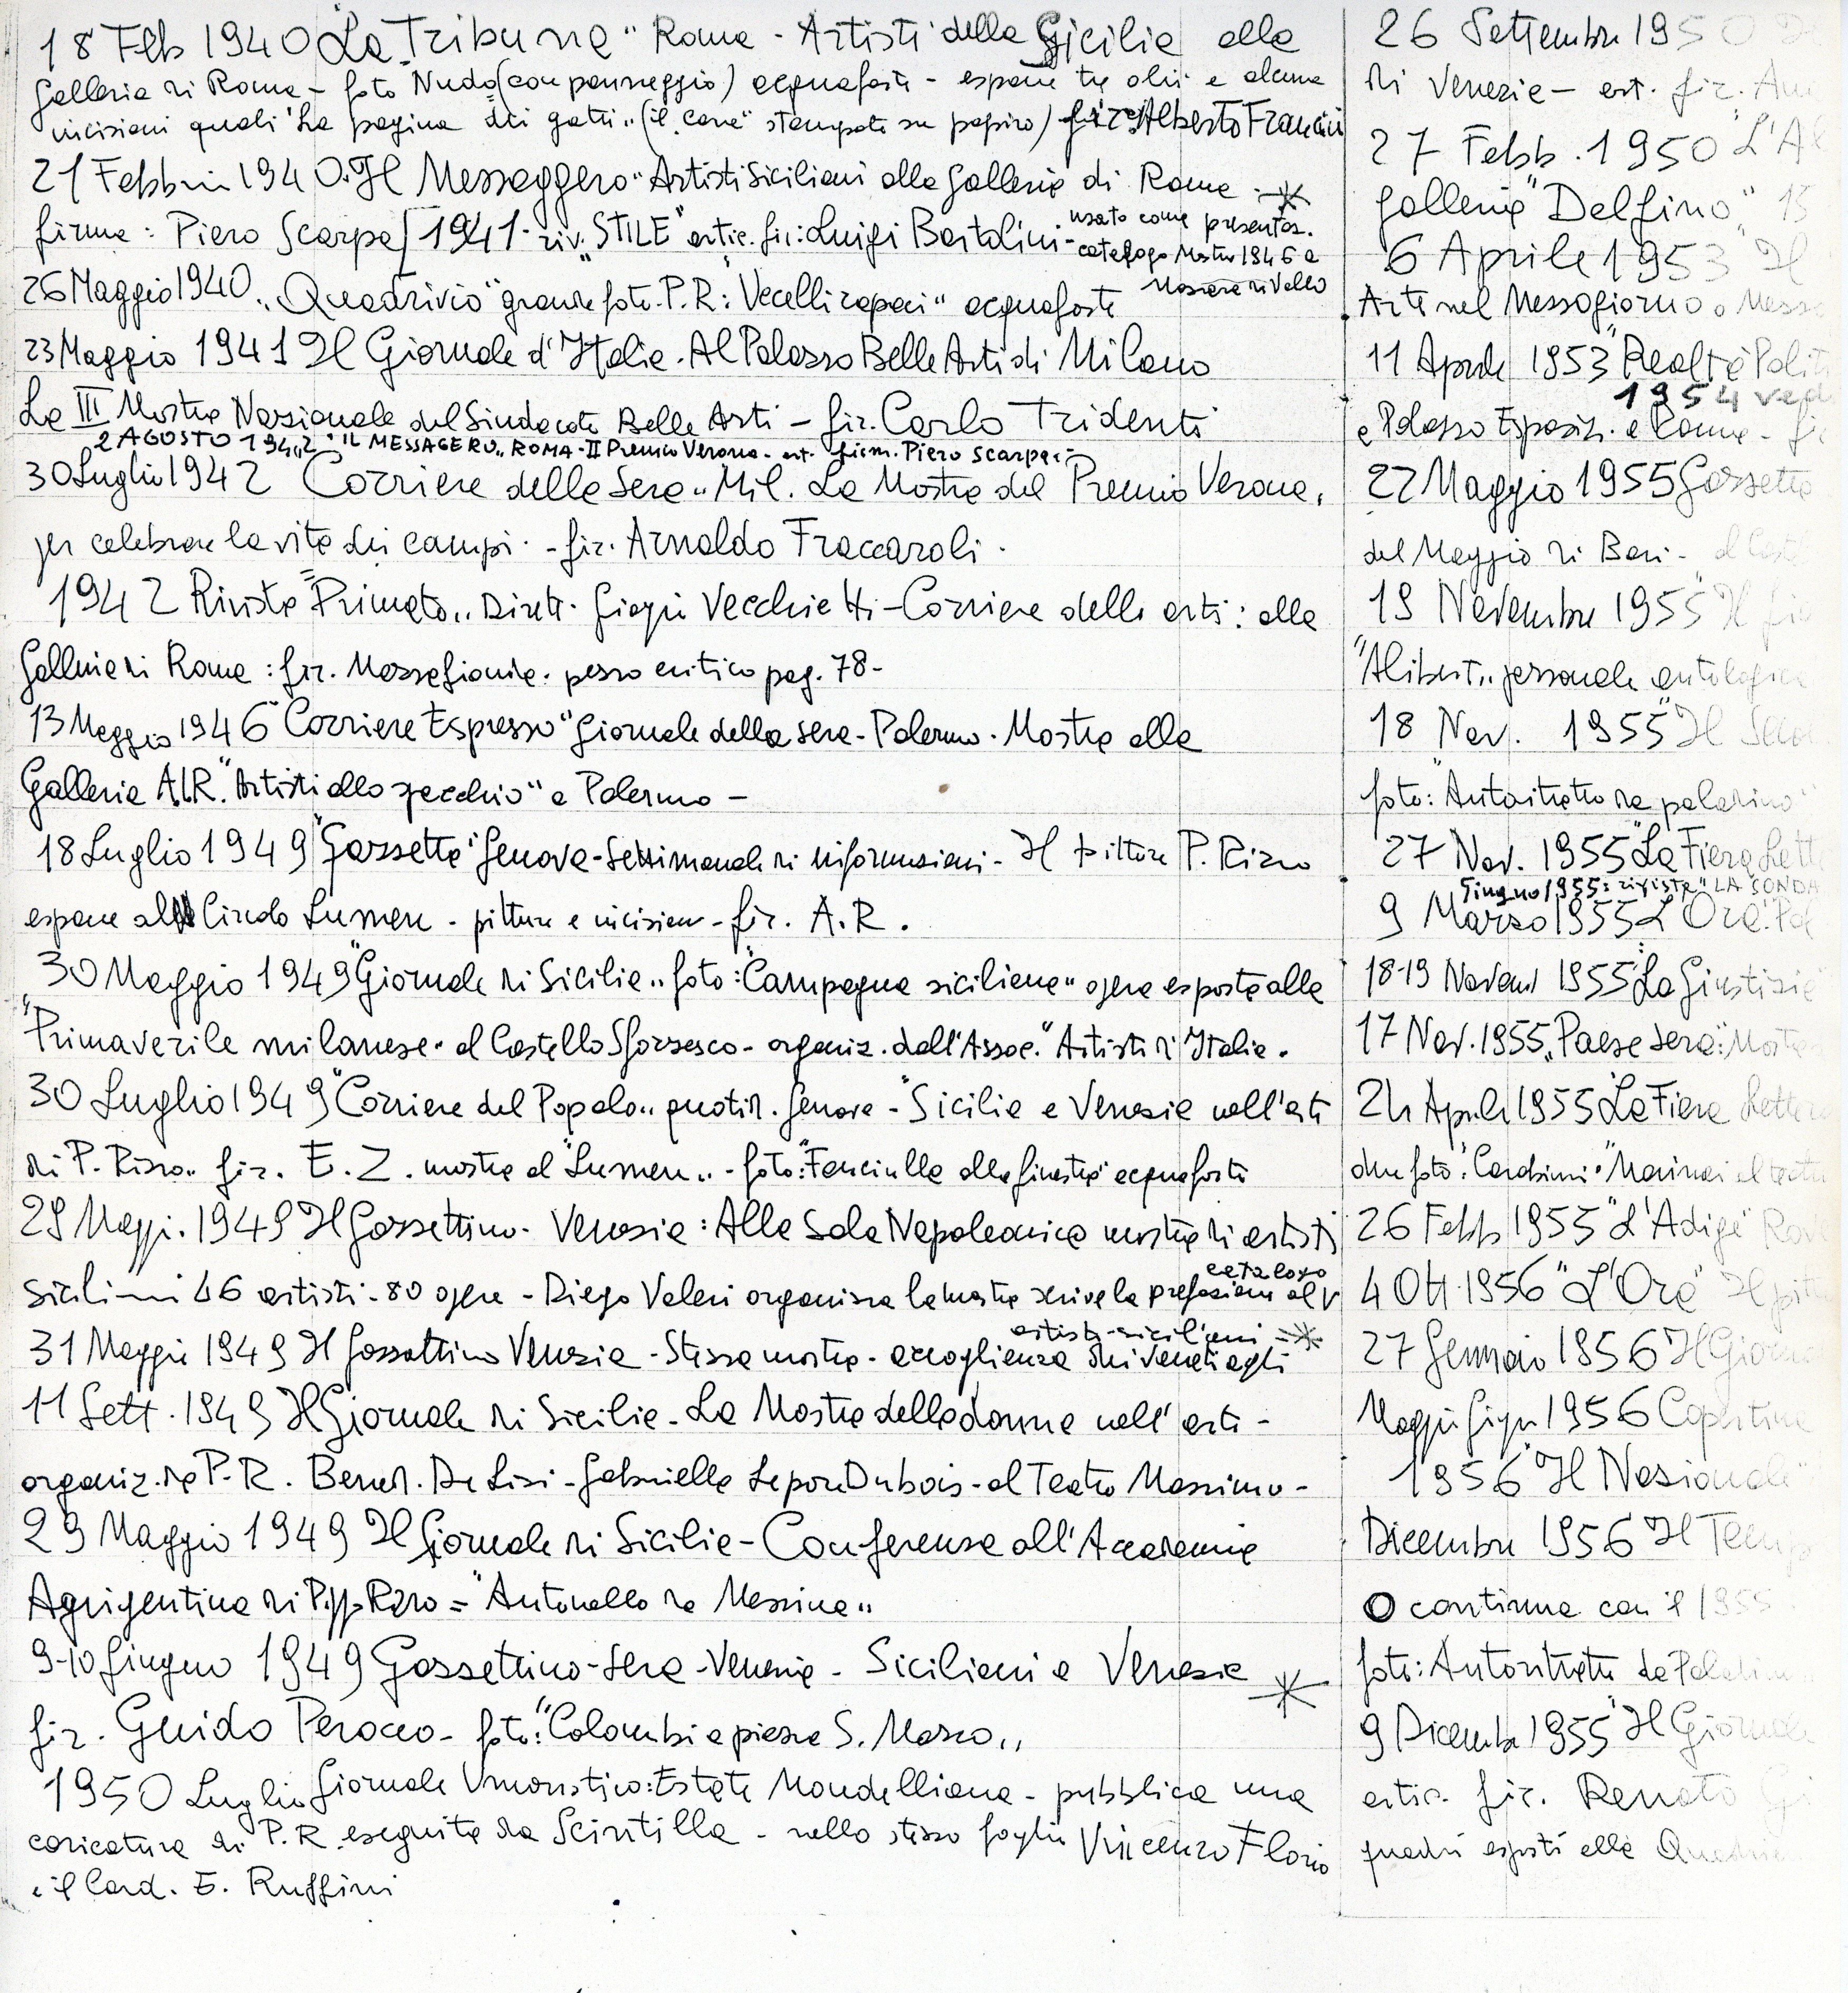 18 Feb 1940 "La Tribuna" Roma - Artisti della Sicilia alla
Galleria di Roma - foto Nudo (con panneggio) acquaforte - espone tre olii e alcune
incisioni quali "La pagina dei gatti" (il cane" stampate su papiro) fir: Alberto Francini
21 Febbraio 1940. Il Messaggero" Artisti Siciliani alla Galleria di Roma
firma: Piero Scarpa / 1941 - riv. "STILE" artic. fir: Luigi Bartolini - usato come presentaz.
catalogo Mostra 1946 a
Mazara di Vallo
26 Maggio 1940 "Quadrivio" grande foto. P.R: "Uccelli rapaci" acquaforte
23 Maggio 1941 Il Giornale d'Italia - Al Palazzo Belle Arti di Milano
La III Mostra Nazionale del Sindacato Belle Arti - fir. Carlo Tridenti
2 AGOSTO 1942 "IL MESSAGERO" ROMA - II Premio Verona - art. firm. Piero Scarpa
30 Luglio 1942 Corriere della Sera" Mil. La Mostra del Premio Verona,
per celebrare la vita dei campi - fir. Arnaldo Fraccaroli.
1942 Rivista "Primato" Dirett. Giorgio Vecchietti - Corriere delle arti: alla
Galleria di Roma: fir. Mezzafionda. pezzo critico pag. 78 -
13 Maggio 1946 "Corriere Espresso" Giornale della sera - Palermo. Mostra alla
Galleria A.I.R. "Artisti allo specchio" a Palermo -
18 Luglio 1949 "Gazzetta" Genova - Settimanale di informazioni - Il pittore P. Rizzo
espone al Circolo Lumen - pitture e incisioni - fir. A.R.
30 Maggio 1949 "Giornale di Sicilia" foto: "Campagna siciliana" opera esposta alla
"Primaverile milanese" al Castello Sforzesco - organiz. dall'Assoc. "Artisti d'Italia.
30 Luglio 1949 "Corriere del Popolo" quotid. Genova - "Sicilia e Venezia nell'arte
di P. Rizzo" fir. E. Z. mostra al "Lumen" - foto: "Fanciulla alla finestra" acquaforte
29 Magg. 1949 Il Gazzettino - Venezia: Alla Sala Napoleonica mostra di artisti
siciliani 46 artisti - 80 opere - Diego Valeri organizza la mostra scrive la prefazione al catalogo
31 Maggio 1949 Il Gazzettino Venezia - Stessa mostra - accoglienza dei veneti agli artisti siciliani
11 Sett. 1949 Il Giornale di Sicilia - La Mostra della donna nell'arte -
organiz. da P.R. Bened. De Lisi - Gabriella Lepore Dubois - al Teatro Massimo -
29 Maggio 1949 Il Giornale di Sicilia - Conferenza all'Accademia
Agrigentina di Pippo Rizzo = "Antonello da Messina"
9-10 Giugno 1949 Gazzettino-Sera - Venezia - Siciliani a Venezia
fir. Guido Perocco - foto: "Colombi a piazza S. Marco"
1950 Luglio Giornale Umoristico: Estate Mondelliana - pubblica una
caricatura di P.R. eseguita da Scintilla - nello stesso foglio Vincenzo Florio
e il Card. E. Ruffini
26 Settembre 1950
di Venezia - art. fir.
27 Febb. 1950 "L'Al
Galleria "Delfino" 15
6 Aprile 1953 Il
Arte nel Mezzogiorno
11 Aprile 1953 "Realtà Polit
1954 ved
e Palazzo Esposiz. a Roma -
22 Maggio 1955 Gazzetta
del Maggio di Bari -
19 Novembre 1955 Il
"Alibert" personale antologica
18 Nov. 1955 "Il
foto: "Autoritratto da paladino"
27 Nov. 1955 "La Fiera Lett
Giugno 1955: rivista "LA SONDA
9 Marzo 1955 L'Ora. Pal
18-19 Novem 1955 "La Giustizia
17 Nov. 1955 "Paese Sera": Mostra
24 Aprile 1955 "La Fiera Lettera
due foto: "Cardini" "Marinai al
26 Febb 1955 "L'Adige" Rov
4 Ott. 1956 "L'Ora" Il pitt
27 Gennaio 1956 Il Giorna
Maggio Giugn 1956 Copertina
1956 "Il Nazionale"
Dicembre 1956 Il Temp
O continua con il 1955
foto: Autoritratto da Paladin
9 Dicembre 1955 "Il Giornale
artic. fir. Renato Gi
quadri esposti alla Quadrie